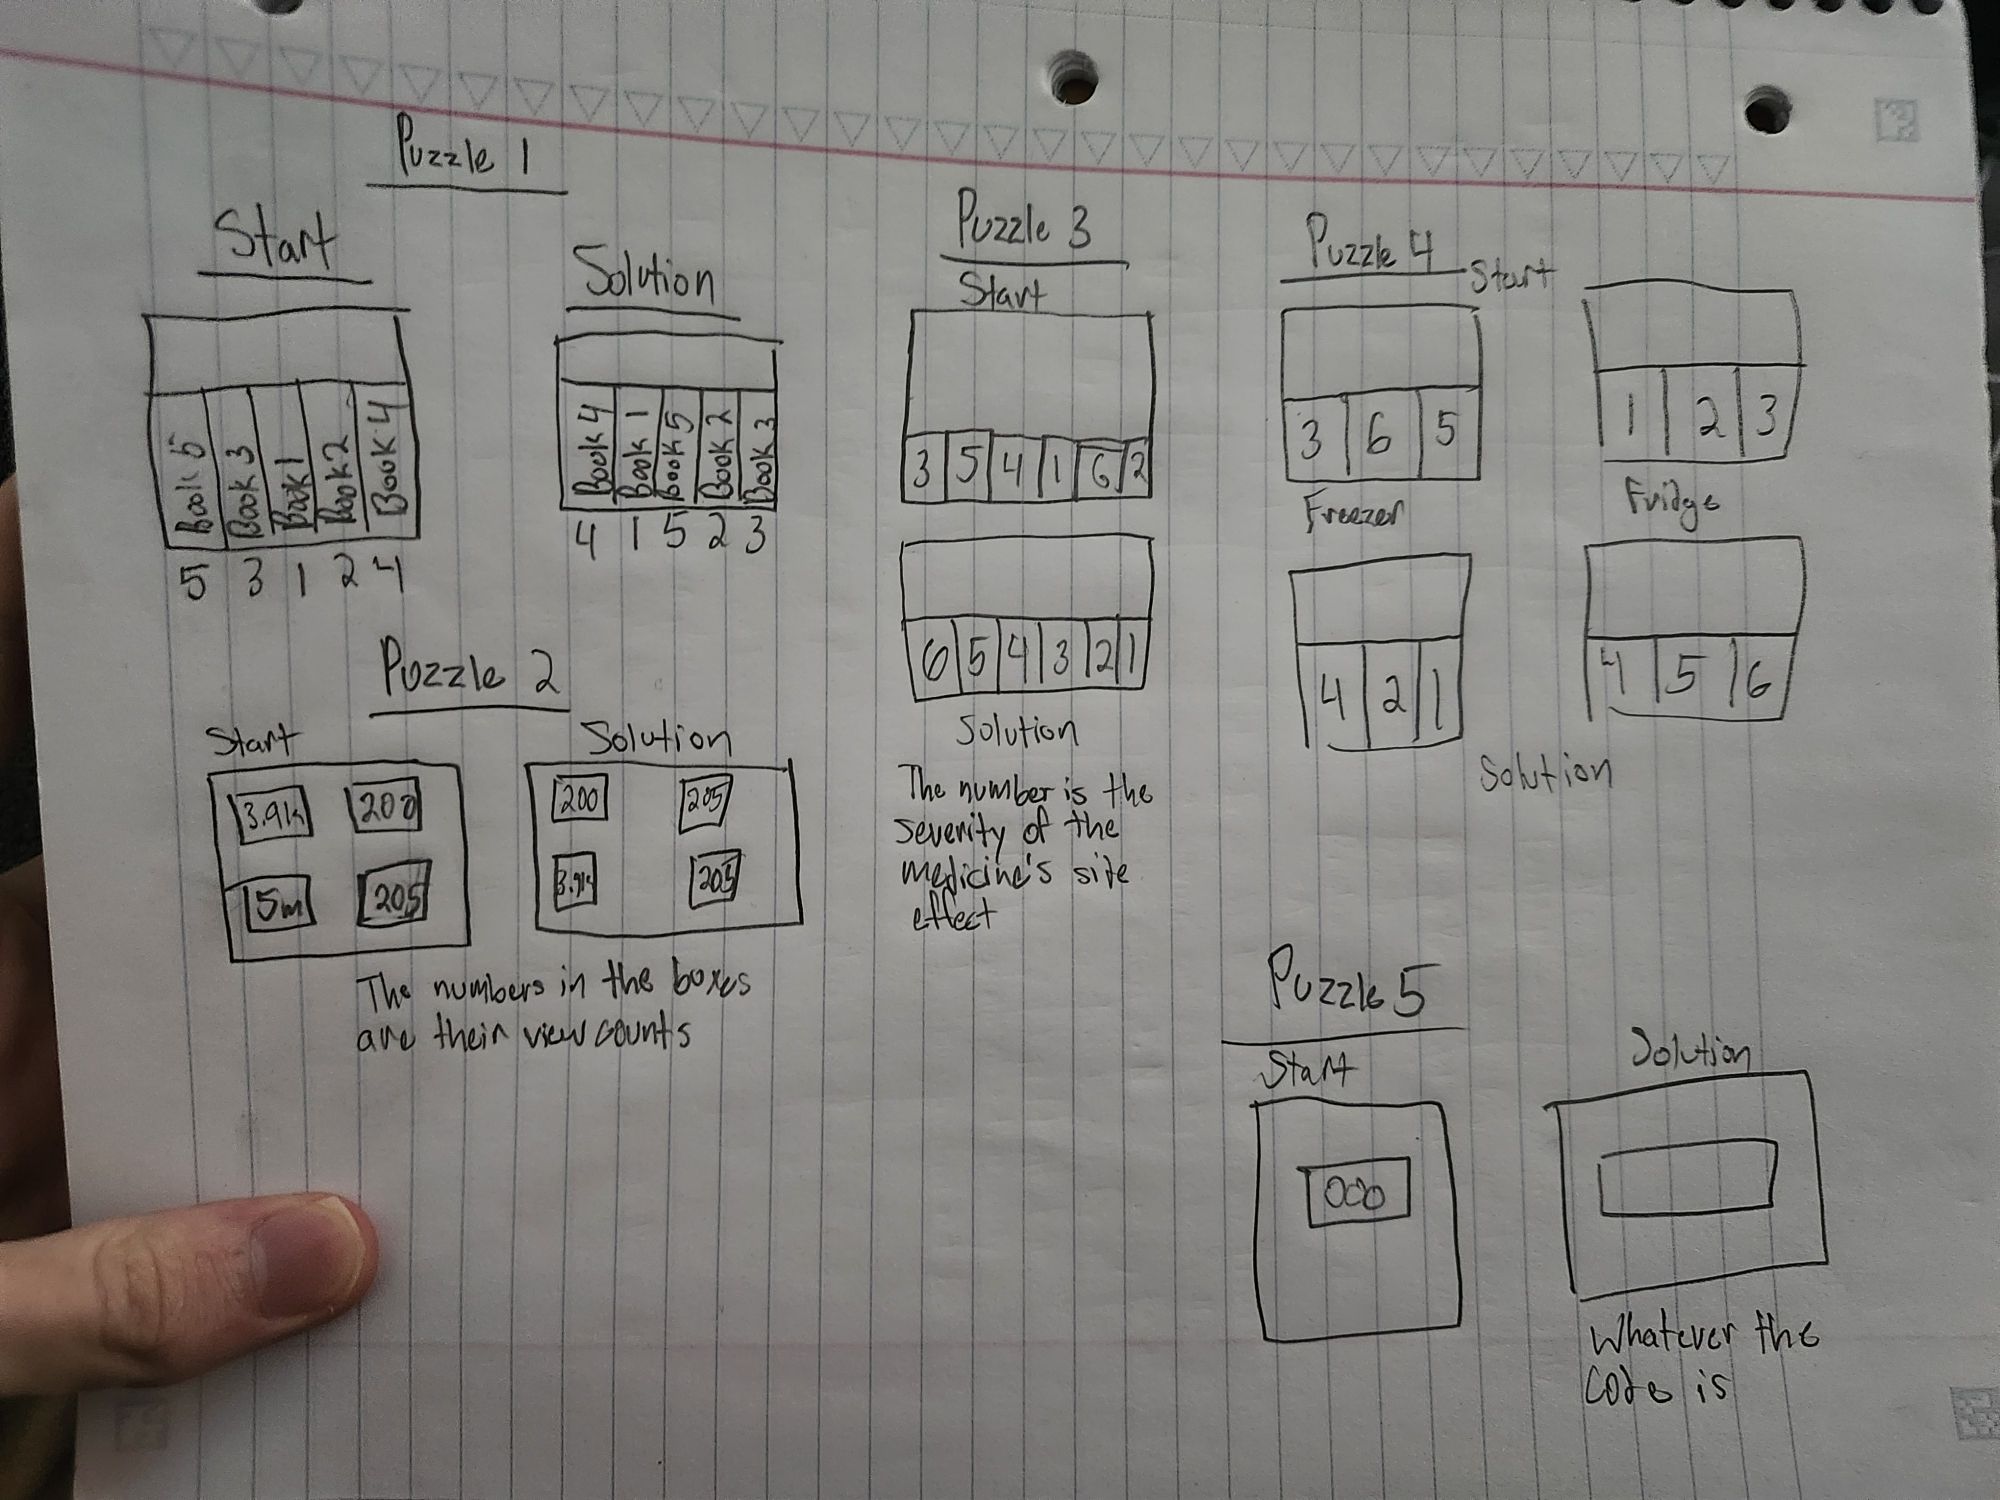 Puzzle 1
Start
Book 5
Book 3
Book 1
Book 2
Book 4
5 3 1 2 4
Solution
Book 4
Book 1
Book 5
Book 2
Book 3
4 1 5 2 3
Puzzle 2
Start
3.9k 200
5m 205
Solution
200 205
3.9k 205
The numbers in the boxes
are their view counts
Puzzle 3
Start
3 5 4 1 6 2
6 5 4 3 2 1
Solution
The number is the
severity of the
medicine's site
effect
Puzzle 4
Start
3 6 5
Freezer
1 2 3
Fridge
4 2 1
4 5 6
Solution
Puzzle 5
Start
000
Solution
Whatever the
Code is